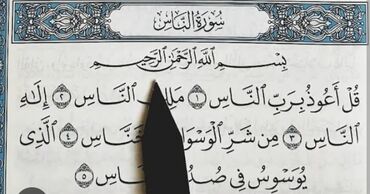 سُورَةُ النَّاسِ
بِسْمِ اللَّهِ الرَّحْمَٰنِ الرَّحِيمِ
قُلْ أَعُوذُ بِرَبِّ النَّاسِ ١ مَلِكِ النَّاسِ ٢ إِلَٰهِ
النَّاسِ ٣ مِن شَرِّ الْوَسْوَاسِ الْخَنَّاسِ ٤ الَّذِي
يُوَسْوِسُ فِي صُدُورِ النَّاسِ ٥